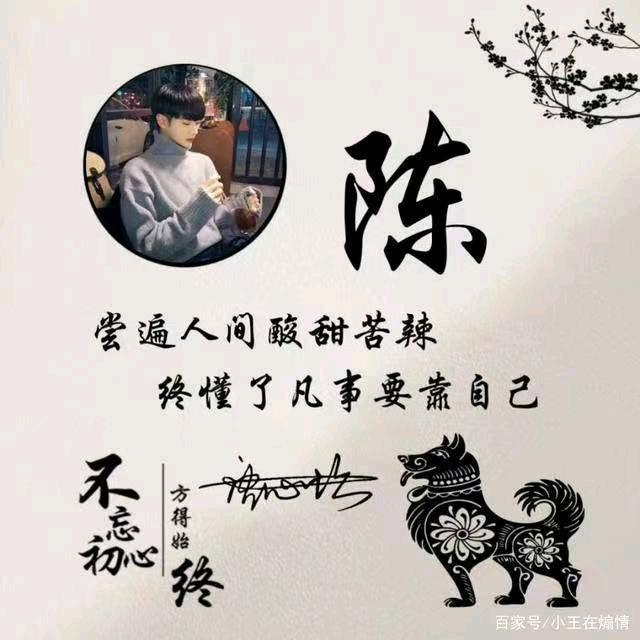 陈
尝遍人间酸甜苦辣
终懂了凡事要靠自己
不忘初心
方得始终
百家号/小王在煽情